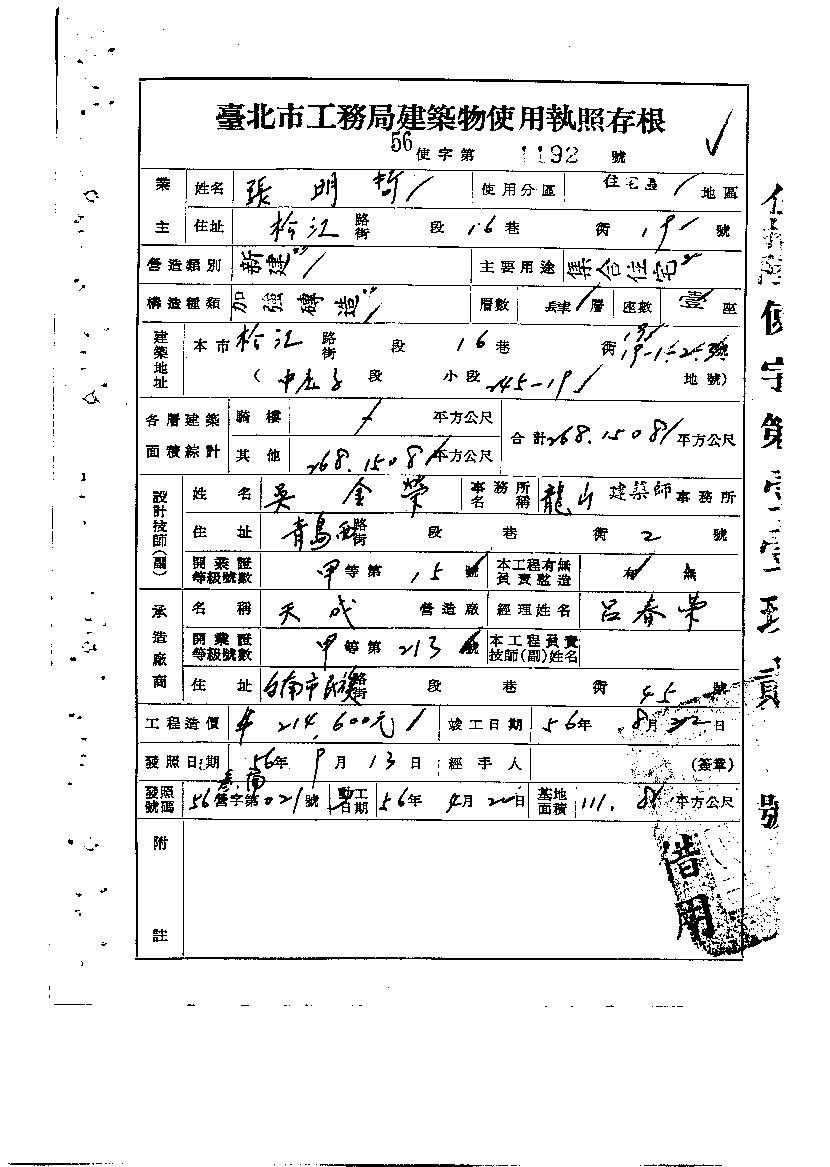 臺北市工務局建築物使用執照存根
56使字第 1192 號
業主 姓名 張明哲 使用分區 住宅區 地區
住址 松江路街 段 16巷 衖 19 號
營造類別 新建 主要用途 集合住宅
構造種類 加強磚造 層數 層 座數 座
建築地址 本市松江路街 段 16巷 衖
( 段 小段 245-19 地號)
各層建築面積綜計 騎樓 / 平方公尺 合計268.1508平方公尺
其他 268.1508平方公尺
設計技師(副) 姓名 吳金榮 事務所名稱 龍山建築師事務所
住址 青島西路街 段 巷 衖 2 號
開業證等級號數 甲等第 15 號 本工程有無負責監造 有 無
承造廠商 名稱 天成 營造廠 經理姓名 呂春榮
開業證等級號數 甲等第 213 號 本工程負責技師(副)姓名
住址 台南市民族路街 段 巷 衖 45 號
工程造價 214,600元 竣工日期 56年 8月 22日
發照日期 56年 9月 13日 經手人 (簽章)
發照號碼 56營字第021號 動工日期 56年 4月 20日 基地面積 111.8 平方公尺
附註
借用